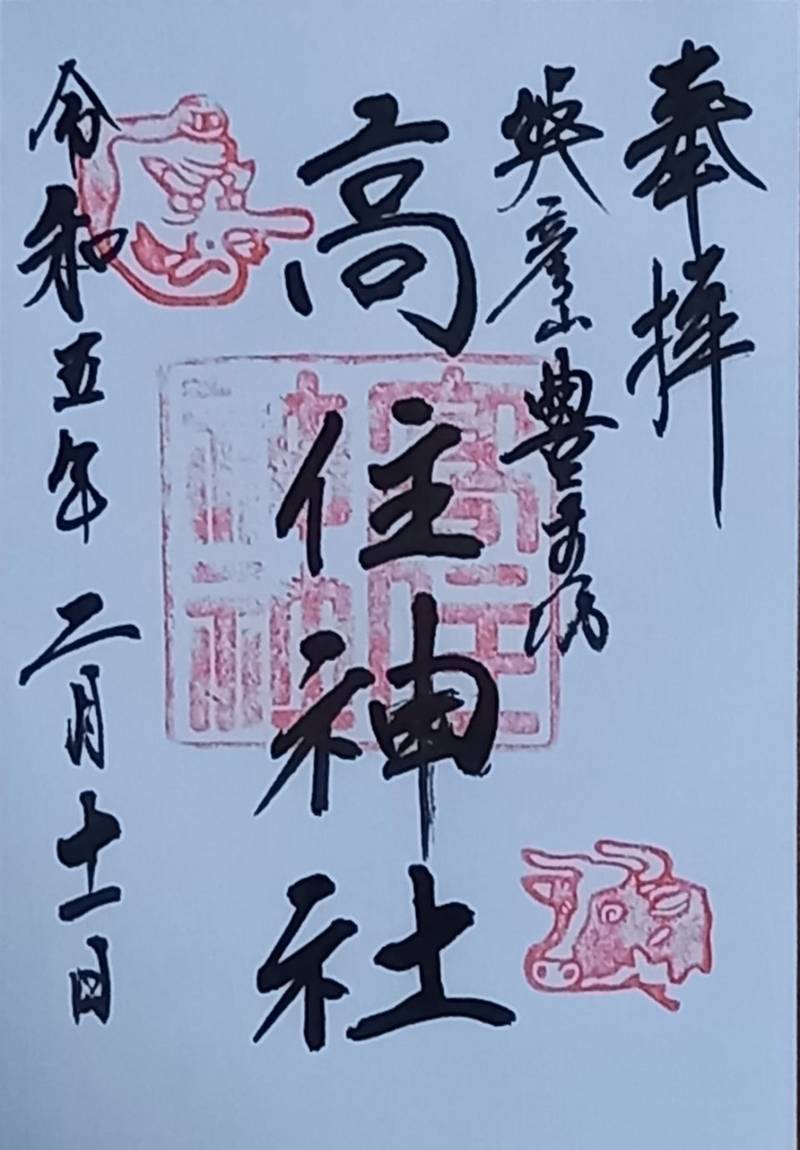 奉拝
英彦山豊前坊
高住神社
令和五年二月十一日